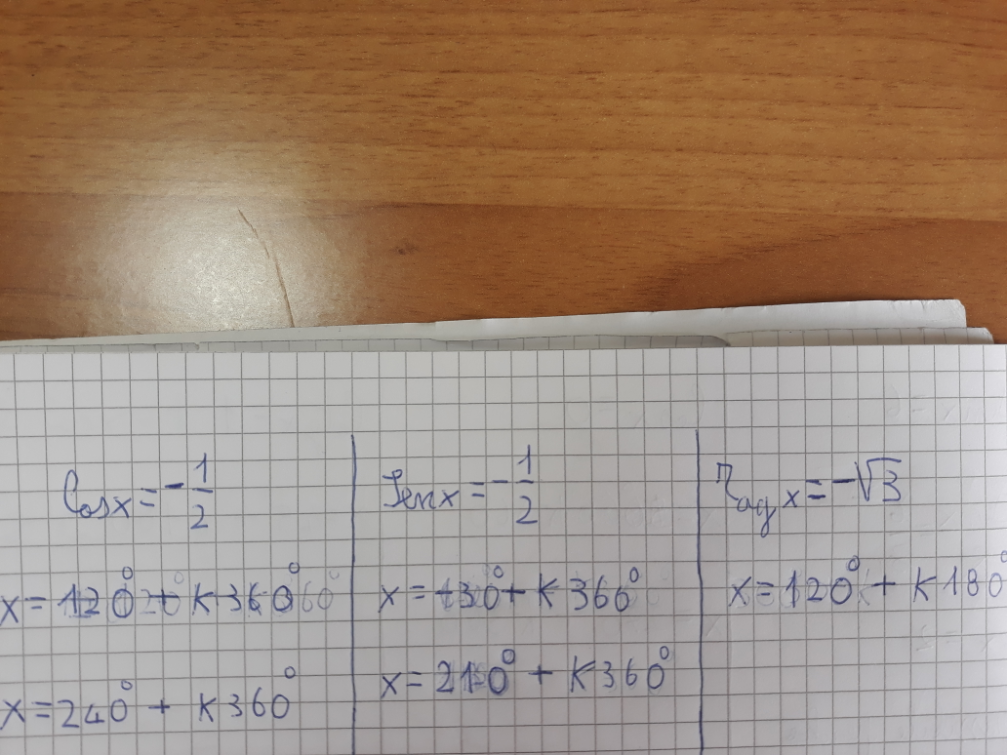 Cos x = - 1/2
x = 120° + K 360°
x = 240° + K 360°
Sen x = - 1/2
x = -30° + K 360°
x = 210° + K 360°
Tag x = -√3
x = 120° + K 180°